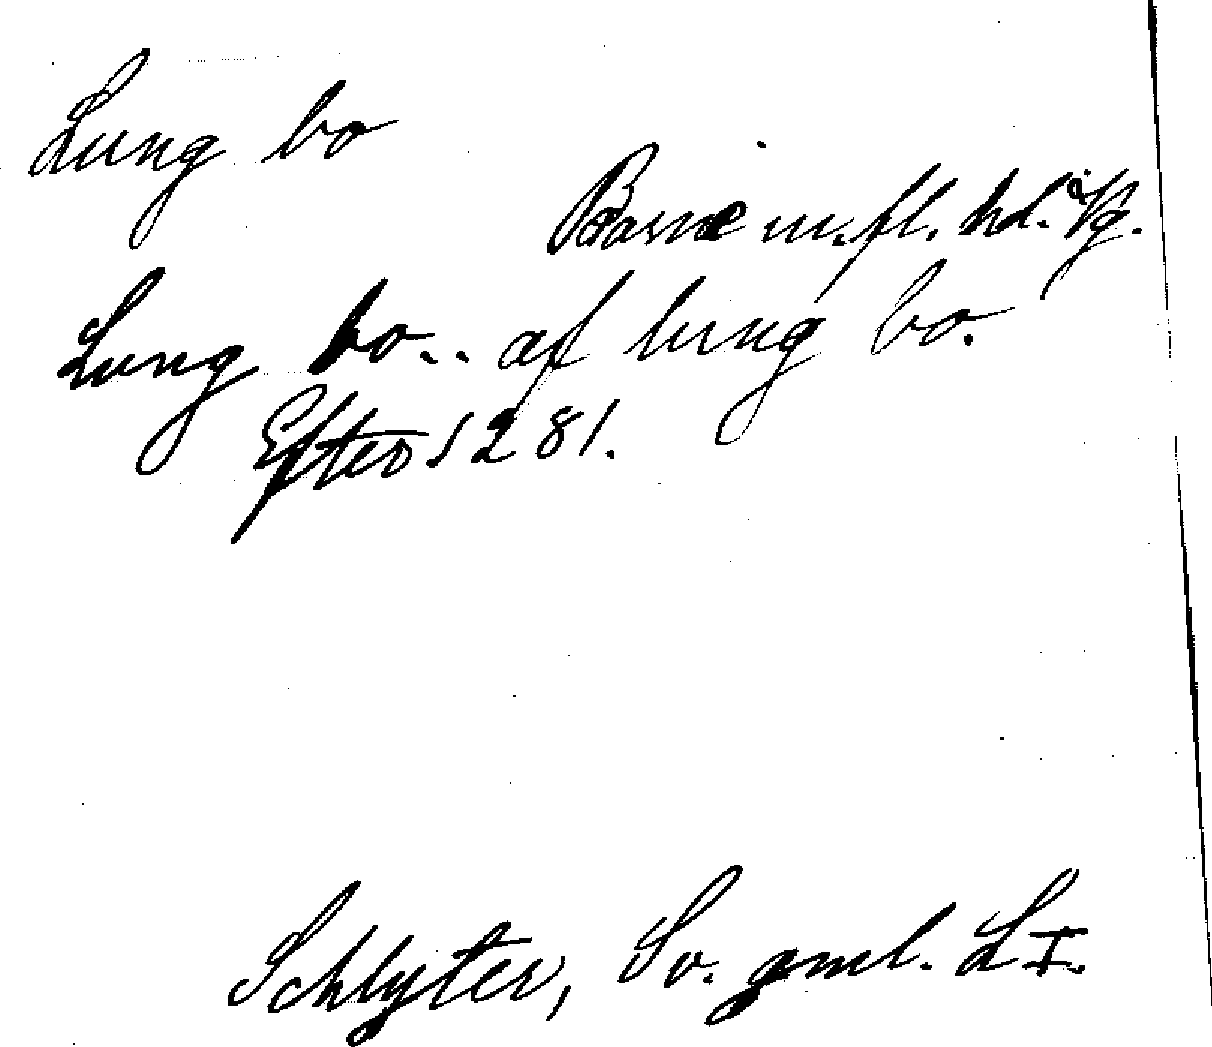 Lung bo
Barne m. fl. hd. Vg.
Lung bo.. af lung bo.
Efter 1281.
Schlyter, Sv. gml. L I.